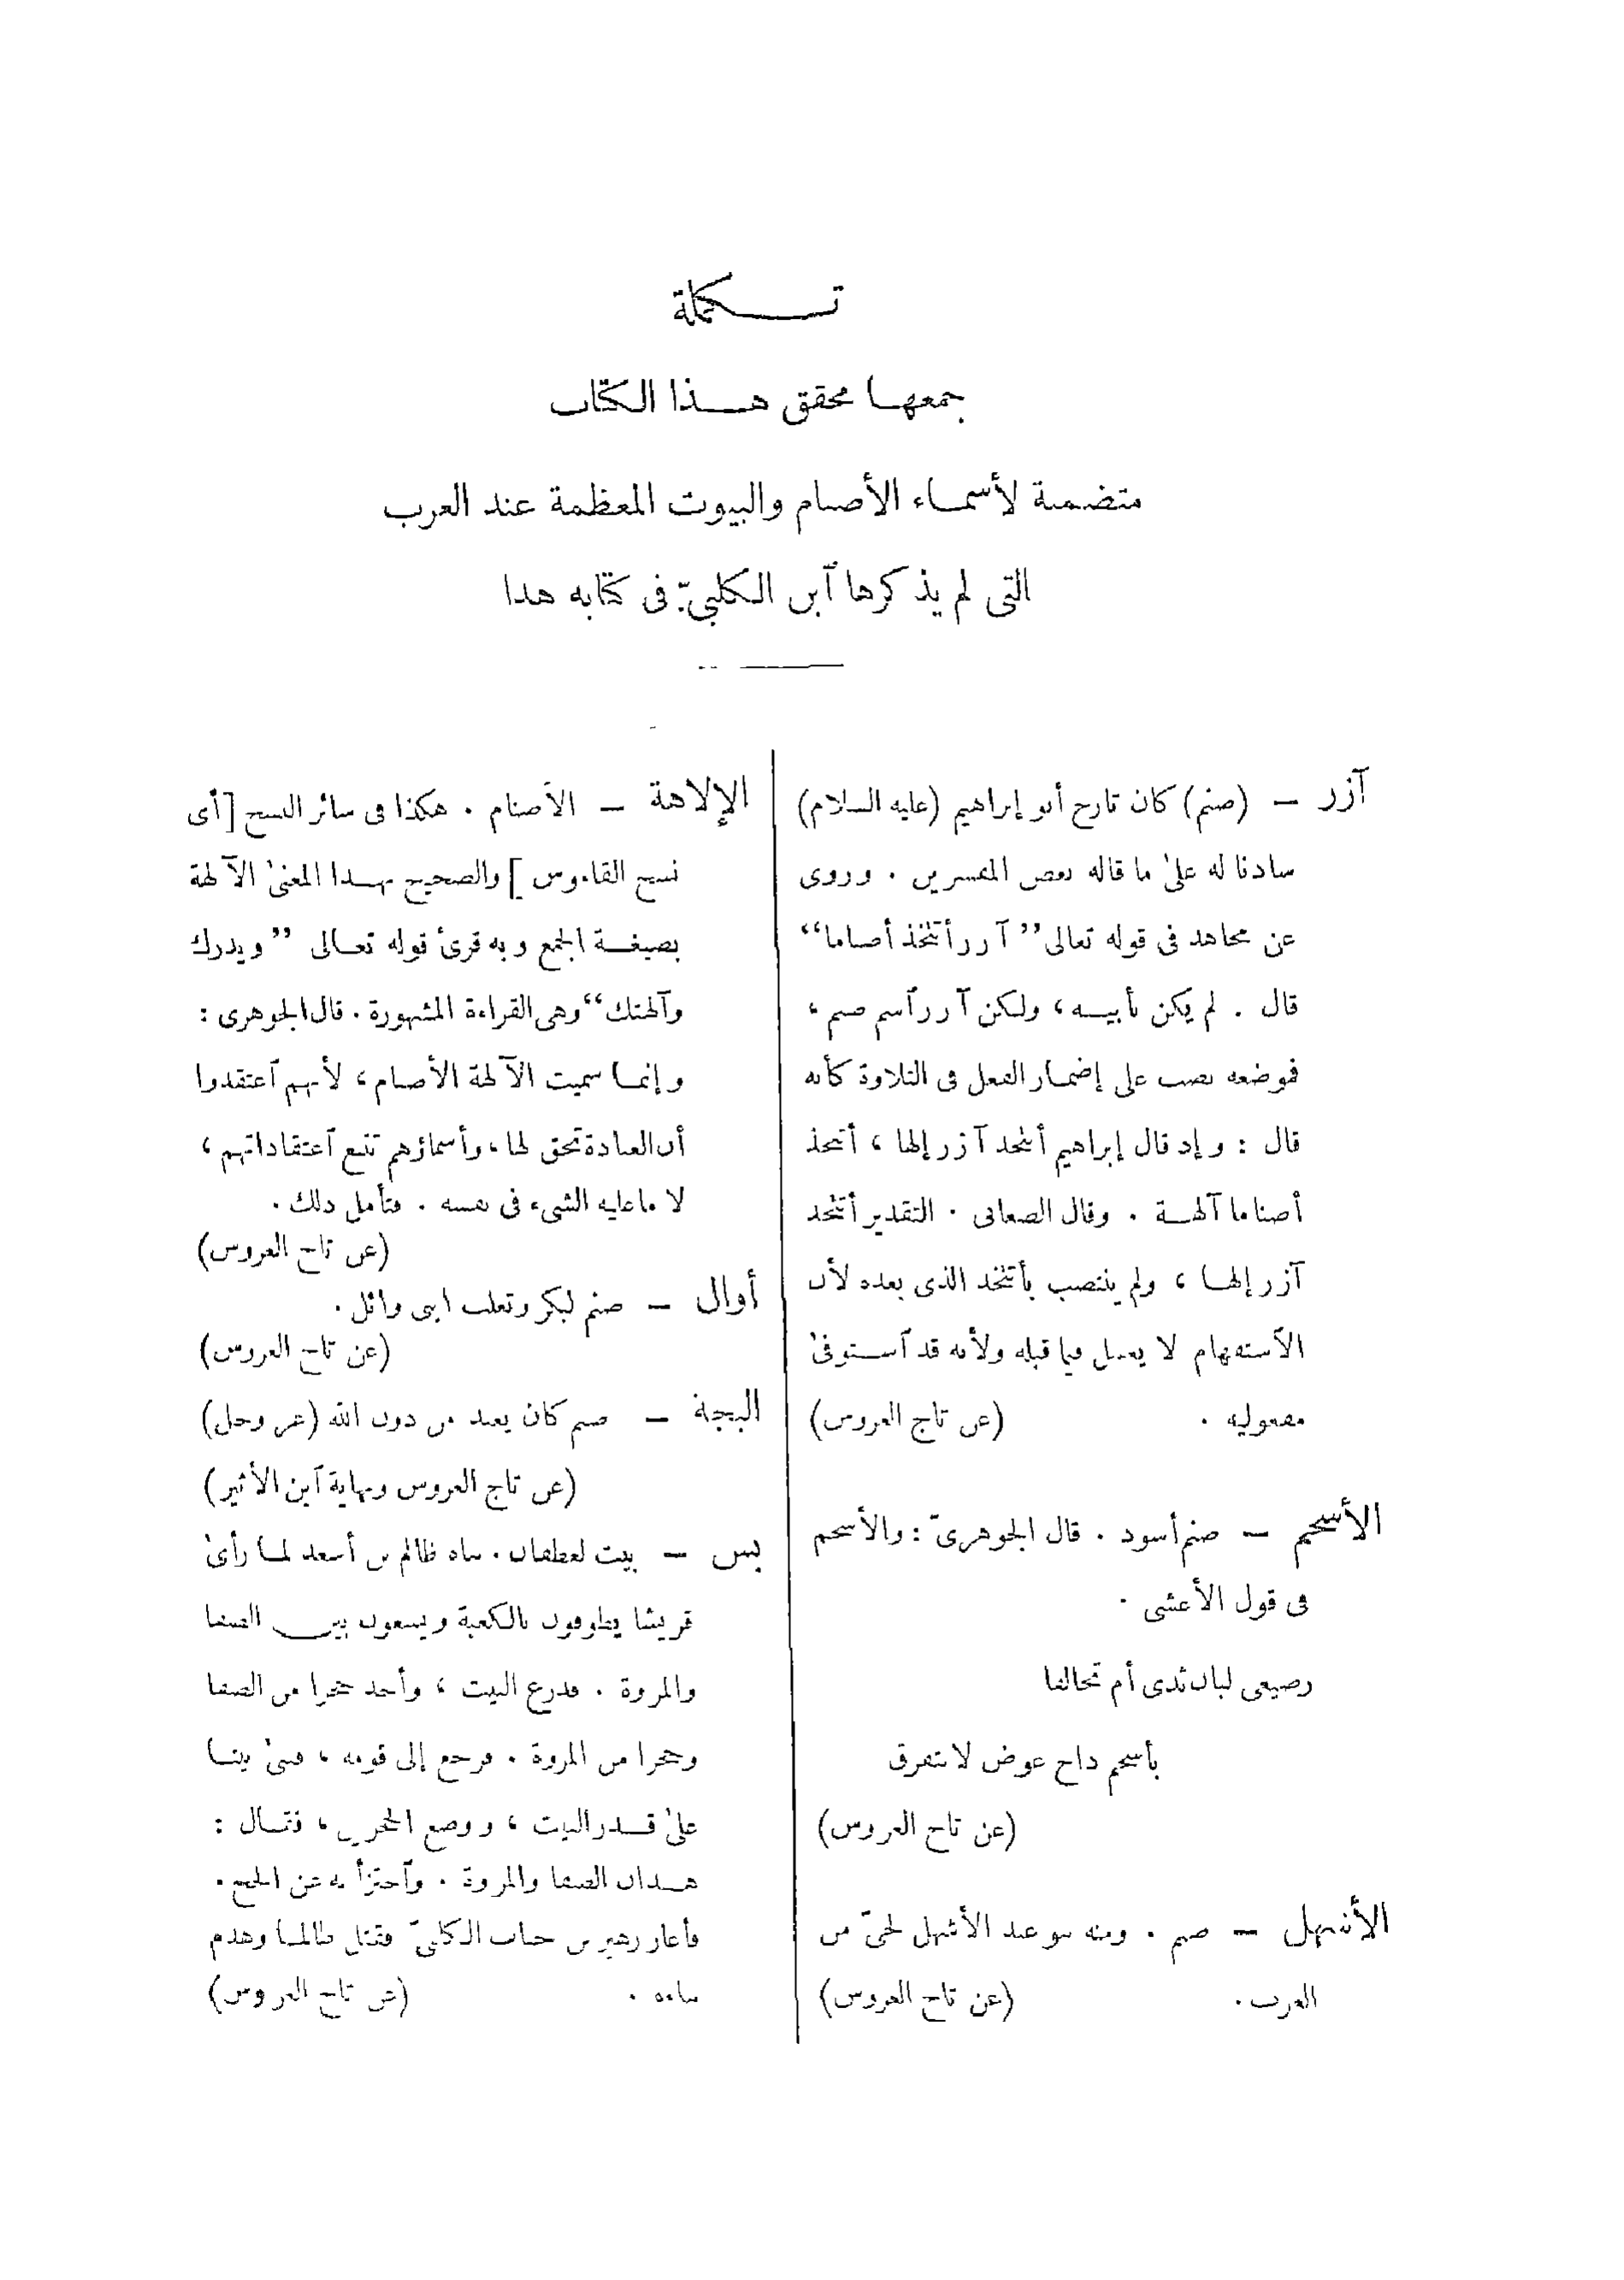 تكملة
جمعها محقق هذا الكتاب
متضمنة لأسماء الأصنام والبيوت المعظمة عند العرب
التى لم يذكرها آبن الكلبىّ فى كتابه هذا
آزر — (صنم) كان تارح أبو إبراهيم (عليه السلام)
سادنا له علىٰ ما قاله بعض المفسرين . وروى
عن مجاهد فى قوله تعالى ”آزر أتتخذ أصناما“
قال . لم يكن بأبيه ، ولكن آزر آسم صنم ،
فموضعه نصب على إضمار الفعل فى التلاوة كأنه
قال : وإذ قال إبراهيم أتتخذ آزر إلها ، أتتخذ
أصناما آلهة . وقال الصغانى . التقدير أتتخذ
آزر إلها ، ولم ينتصب بأتتخذ الذى بعده لأن
الآستفهام لا يعمل فيما قبله ولأنه قد آستوفىٰ
مفعوليه . (عن تاج العروس)
الأسحم — صنم أسود . قال الجوهرىّ : والأسحم
فى قول الأعشى .
رضيعى لبان ثدى أم تحالفا
بأسحم داج عوض لا نتفرق
(عن تاج العروس)
الأشهل — صنم . ومنه بنو عبد الأشهل لحىّ من
العرب . (عن تاج العروس)
الإلاهة — الأصنام . هكذا فى سائر النسخ [أى
نسخ القاموس] والصحيح بهذا المعنىٰ الآلهة
بصيغة الجمع وبه قرئ قوله تعالى ”ويذرك
وآلهتك“ وهى القراءة المشهورة . قال الجوهرى :
وإنما سميت الآلهة الأصنام ، لأنهم آعتقدوا
أن العبادة تحق لها ، وأسماؤهم تتبع آعتقاداتهم ،
لا ما عليه الشىء فى نفسه . فتأمل ذلك .
(عن تاج العروس)
أوال — صنم لبكر وتغلب ابنى وائل .
(عن تاج العروس)
البجة — صنم كان يعبد من دون الله (عز وجل)
(عن تاج العروس ونهاية آبن الأثير)
بس — بيت لغطفان . بناه ظالم بن أسعد لما رأىٰ
قريشا يطوفون بالكعبة ويسعون بين الصفا
والمروة . فذرع البيت ، وأخذ حجرا من الصفا
وحجرا من المروة . فرجع إلى قومه ، فبنىٰ بيتا
علىٰ قدر البيت ، ووضع الحجرين ، فقال :
هذان الصفا والمروة . وآجتزأ به عن الحج .
فأغار زهير بن جناب الكلبىّ فقتل ظالما وهدم
بناءه . (عن تاج العروس)